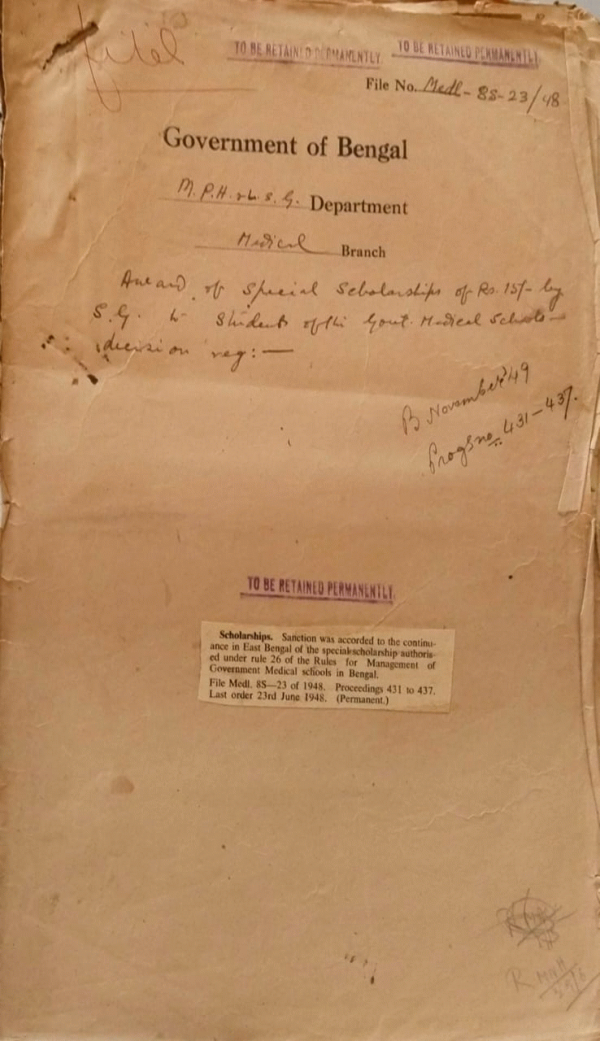 filed
TO BE RETAINED PERMANENTLY
TO BE RETAINED PERMANENTLY.
File No. Medl-8S-23/48
Government of Bengal
M.P.H. & L.S.G. Department
Medical Branch
Award of Special Scholarships of Rs. 15/- by
S.G. to Students of the Govt. Medical Schools —
decision reg: —
B November '49
Progs no. 431-437.
TO BE RETAINED PERMANENTLY.
Scholarships. Sanction was accorded to the continu-
ance in East Bengal of the special scholarship authoris-
ed under rule 26 of the Rules for Management of
Government Medical schools in Bengal.
File Medl. 8S—23 of 1948. Proceedings 431 to 437.
Last order 23rd June 1948. (Permanent.)